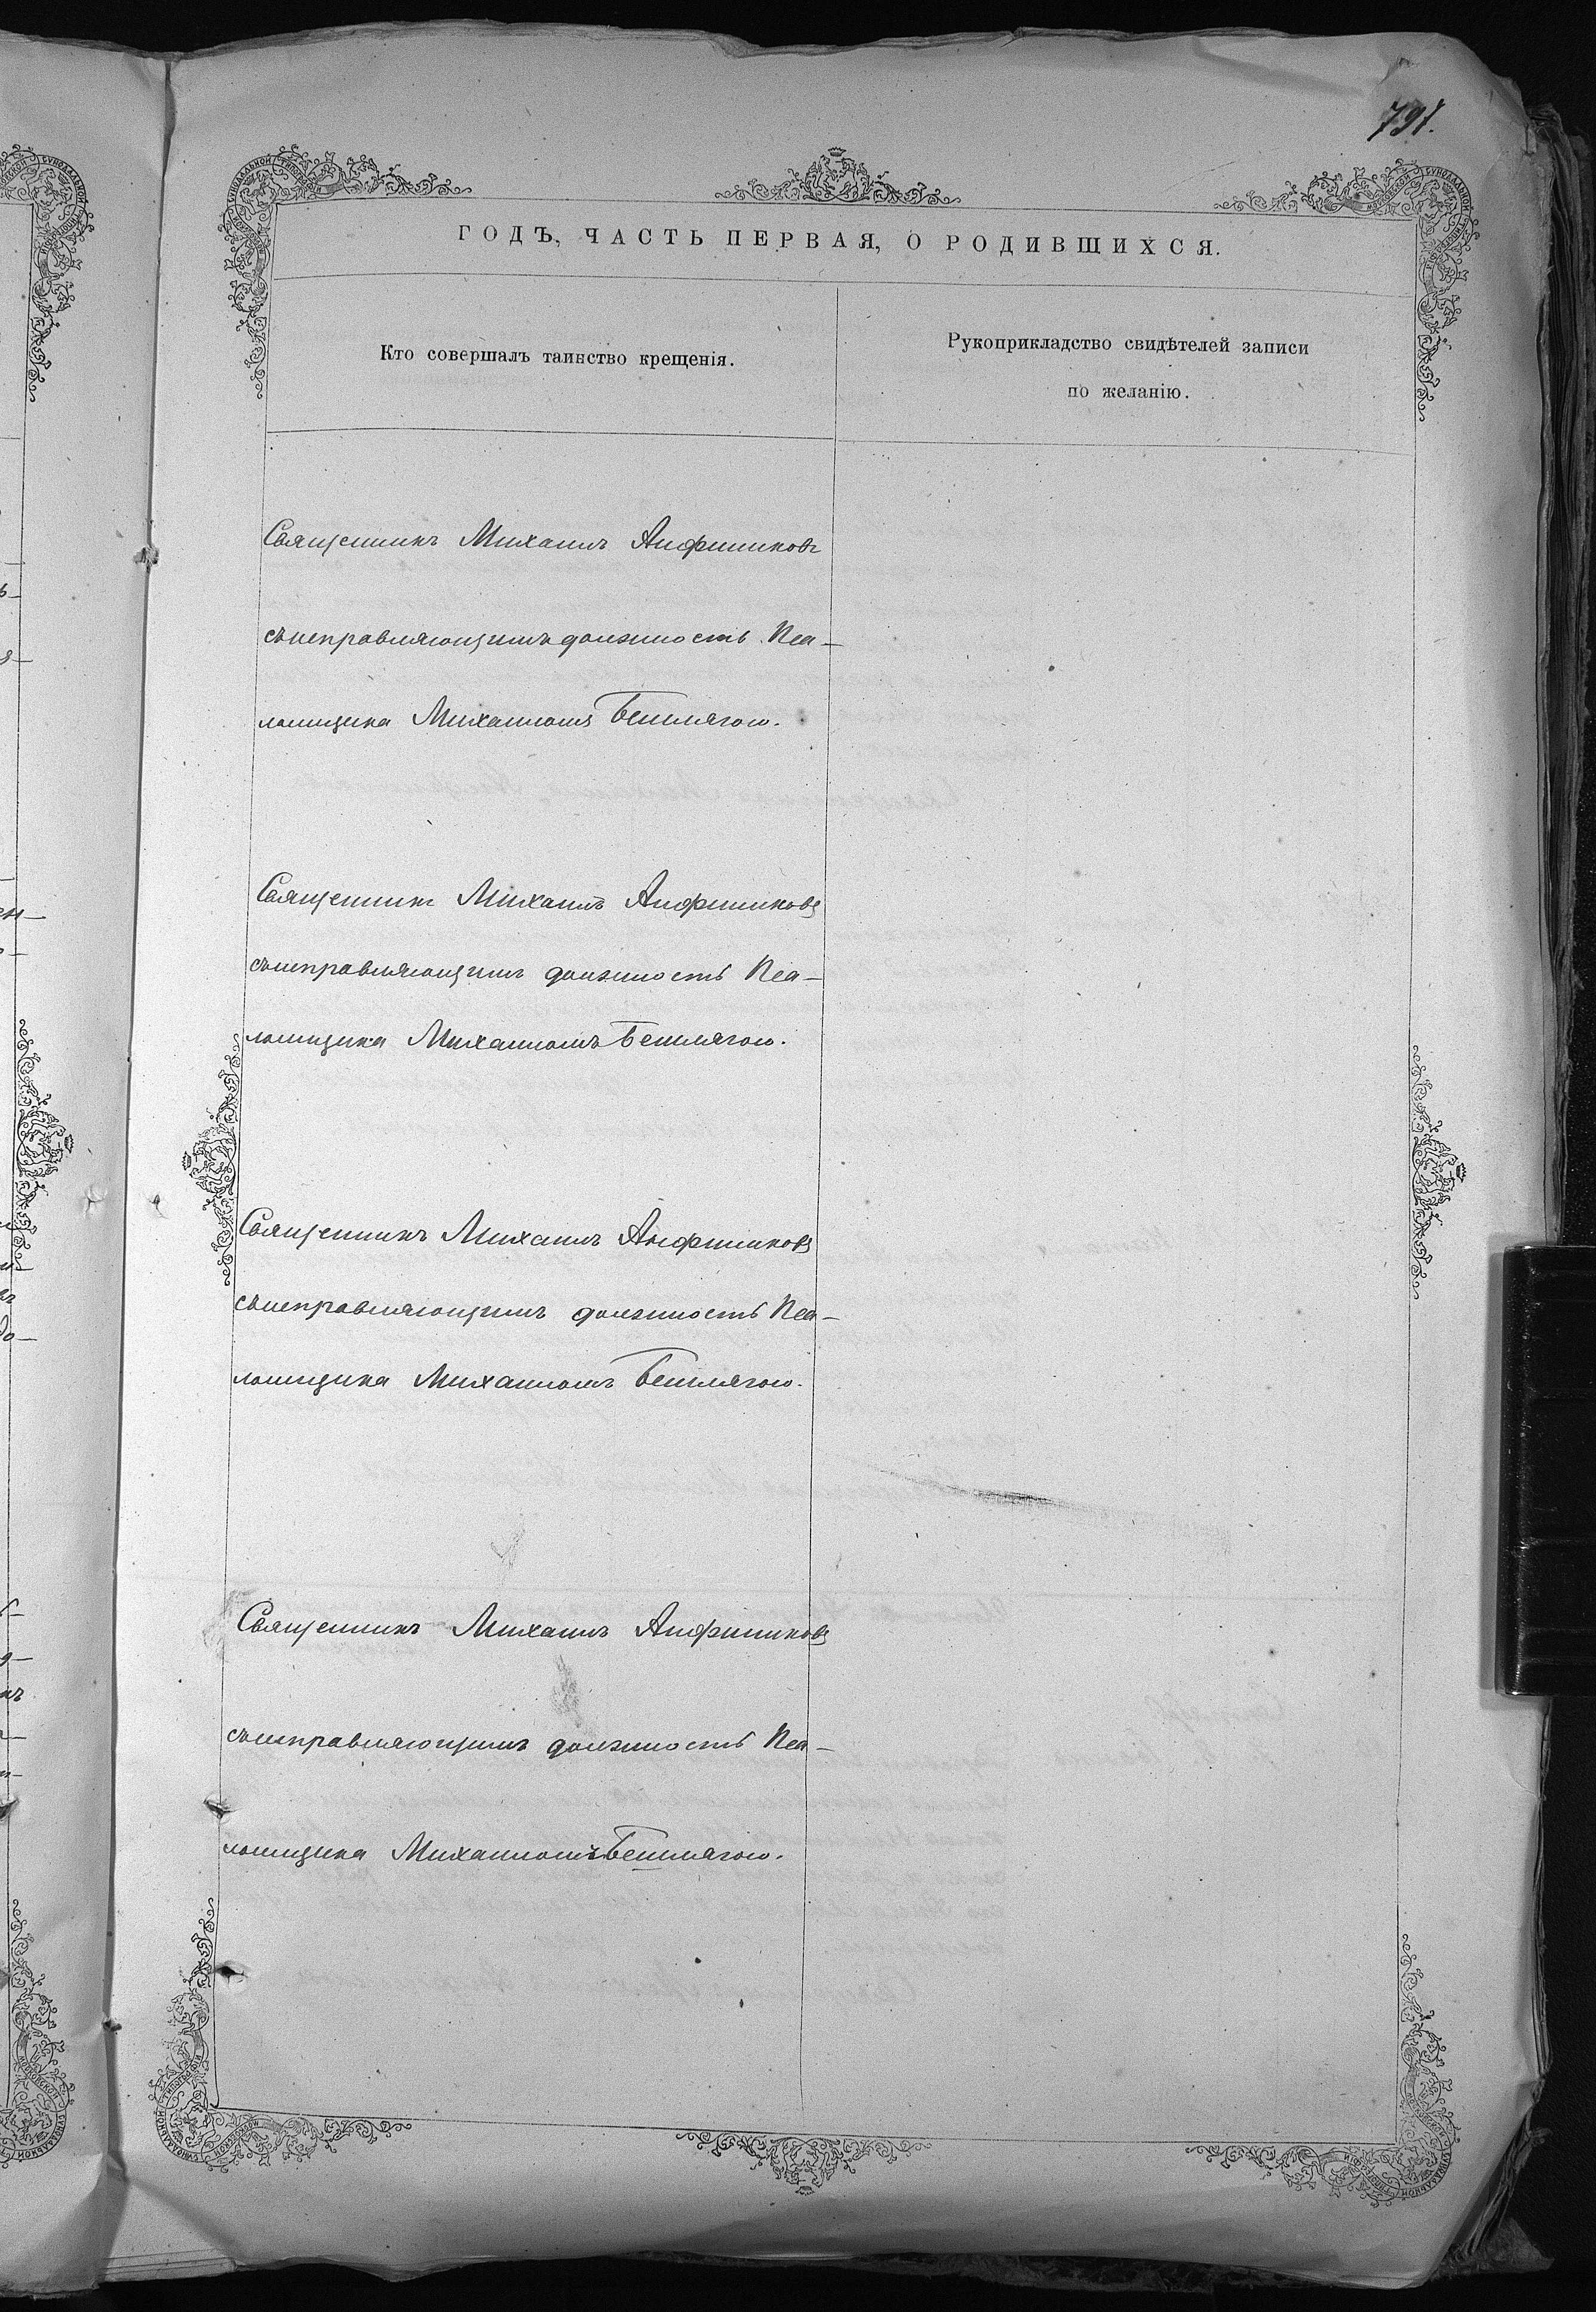 791.
ГОДЪ, ЧАСТЬ ПЕРВАЯ, О РОДИВШИХСЯ.
Кто совершалъ таинство крещенія.
Рукоприкладство свидѣтелей записи
по желанію.
Священникъ Михаилъ Анфиниковъ
съисправляющимъ должность Пса–
ломщика Михаиломъ
Священникъ Михаилъ Анфиниковъ
съисправляющимъ должность Пса–
ломщика Михаиломъ
Священникъ Михаилъ Анфиниковъ
съисправляющимъ должность Пса–
ломщика Михаиломъ
Священникъ Михаилъ Анфиниковъ
съисправляющимъ должность Пса–
ломщика Михаиломъ